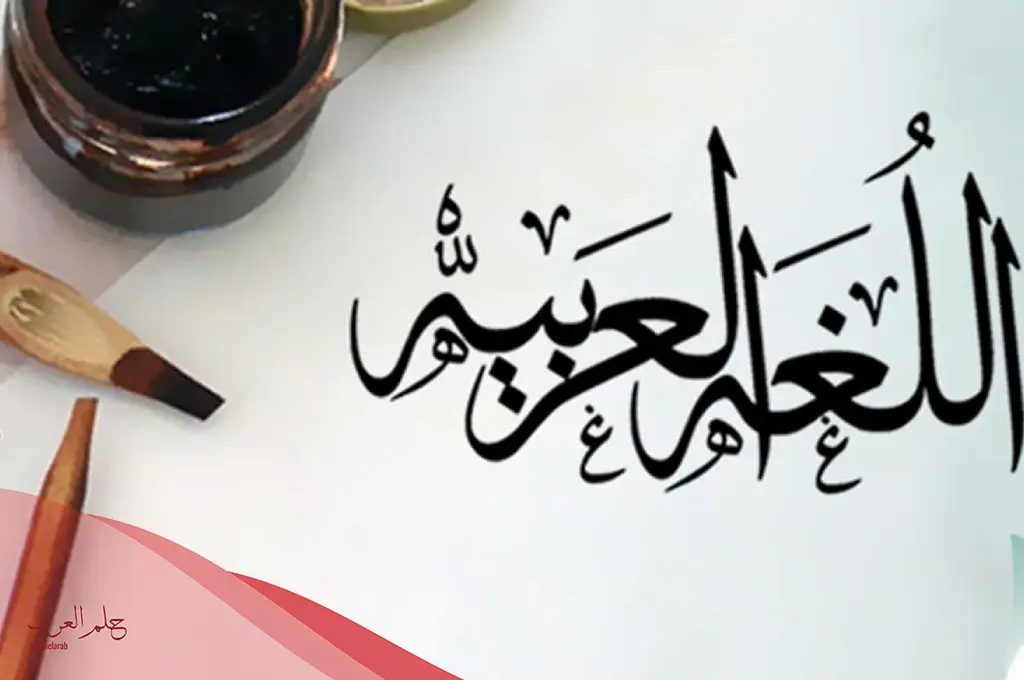 اللُغَه العَربيّه
حلم العرب